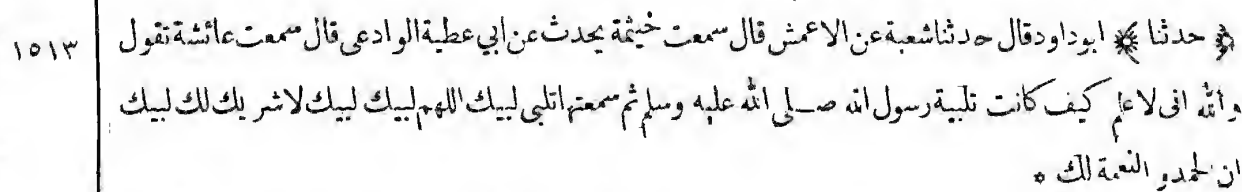 ﴿ حدثنا ﴾ ابوداود قال حدثنا شعبة عن الاعمش قال سمعت خيثمة يحدث عن ابي عطية الوادعى قال سمعت عائشة تقول ١٥١٣
والله انى لاعلم كيف كانت تلبية رسول الله صلى الله عليه وسلم ثم سمعتها تلبى لبيك اللهم لبيك لبيك لاشريك لك لبيك
ان لحمد و النعمة لك *